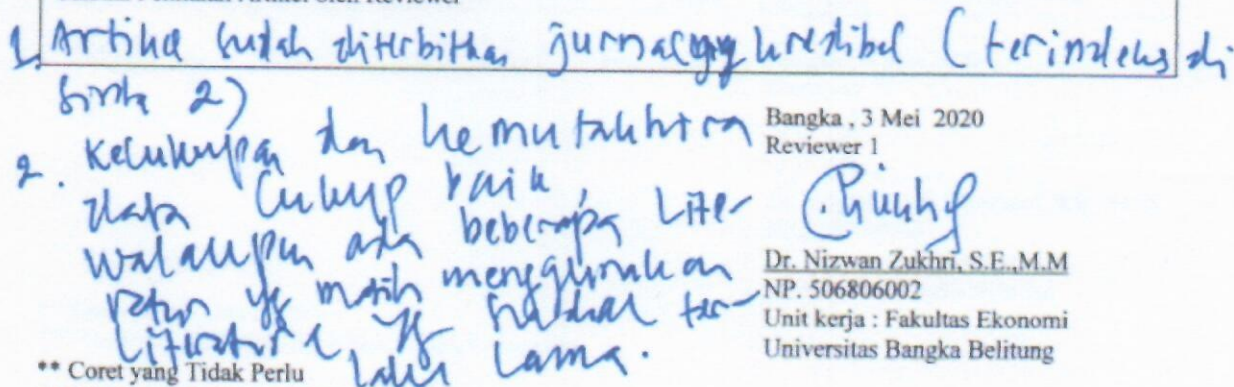 Artikel oleh Reviewer
1. Artikel sudah diterbitkan jurnal yg kredibel (terindeks di
Sinta 2)
2. Kecukupan dan kemutakhiran
data cukup baik,
walaupun ada beberapa liter
ratur yg masih menggunakan
literatur yg sudah ter
lalu lama.
Bangka , 3 Mei 2020
Reviewer 1
Dr. Nizwan Zukhri, S.E.,M.M
NP. 506806002
Unit kerja : Fakultas Ekonomi
Universitas Bangka Belitung
** Coret yang Tidak Perlu